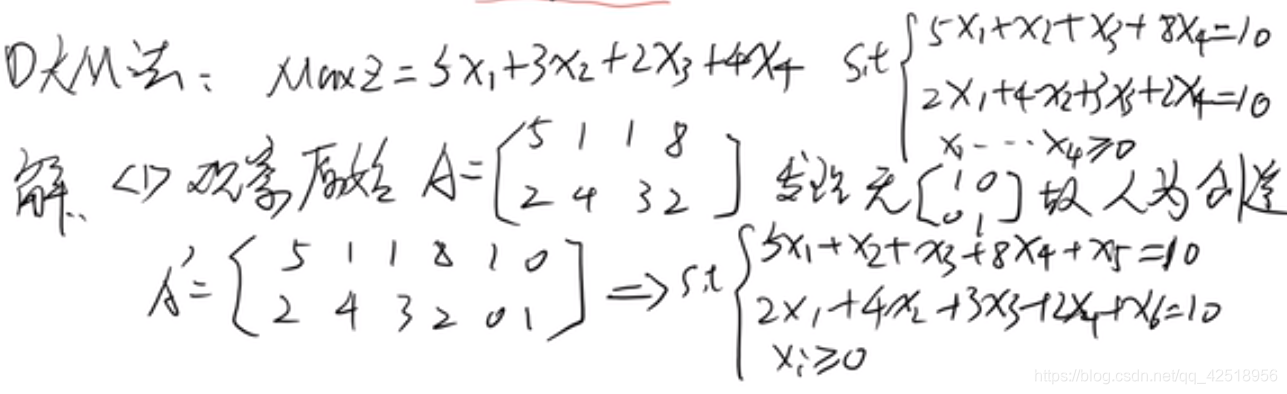 ①大M法: Max z = 5x₁+3x₂+2x₃+4x₄ s.t { 5x₁+x₂+x₃+8x₄=10
2x₁+4x₂+3x₃+2x₄=10
x₁ … x₄≥0
解: <1> 观察原始 A = [ 5 1 1 8
2 4 3 2 ] 发现无 [ 1 0
0 1 ] 故人为创造
A' = [ 5 1 1 8 1 0
2 4 3 2 0 1 ] => s.t { 5x₁+x₂+x₃+8x₄+x₅=10
2x₁+4x₂+3x₃+2x₄+x₆=10
xᵢ≥0
https://blog.csdn.net/qq_42518956